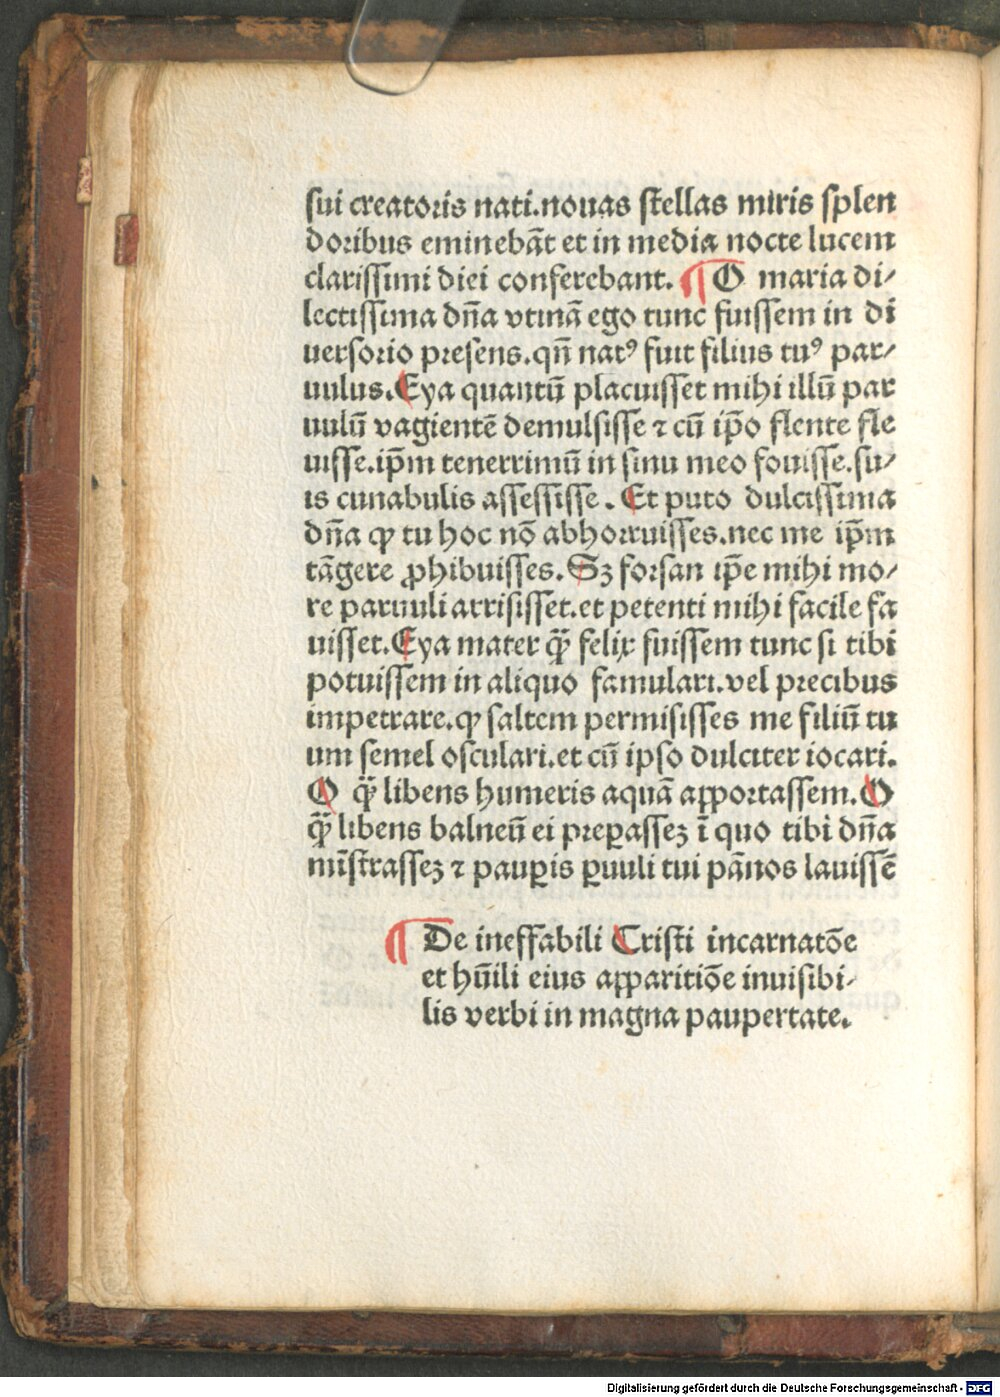 sui creatoris nati.nouas stellas miris splen
doribus eminebāt et in media nocte lucem
clarissimi diei conferebant. ¶ O maria di⸗
lectissima dn̄a vtinā ego tunc fuissem in di
uersorio presens.qn̄ natꝰ fuit filius tuꝰ par⸗
uulus.Eya quantū placuisset mihi illū par
uulū vagientē demulsisse ⁊ cū ip̄o flente fle
uisse.ip̄m tenerrimū in sinu meo fouisse.su⸗
is cunabulis assessisse. Et puto dulcissima
dn̄a ꝙ tu hoc nō abhorruisses.nec me ip̄m
tāgere ꝓhibuisses.Sꝫ forsan ip̄e mihi mo⸗
re paruuli arrisisset.et petenti mihi facile fa
uisset.Eya mater ꝙ̄ felix fuissem tunc si tibi
potuissem in aliquo famulari.vel precibus
impetrare.ꝙ saltem permisisses me filiū tu
um semel osculari.et cū ipso dulciter iocari.
O ꝙ̄ libens humeris aquā apportassem.O
ꝙ̄ libens balneū ei prep̲asseꝫ ī quo tibi dn̄a
mīstrasseꝫ ⁊ paup̲is p̲uuli tui pānos lauissē
¶ De ineffabili Cristi incarnatōe
et hūili eius apparitiōe inuisibi⸗
lis verbi in magna paupertate.
Digitalisierung gefördert durch die Deutsche Forschungsgemeinschaft - DFG